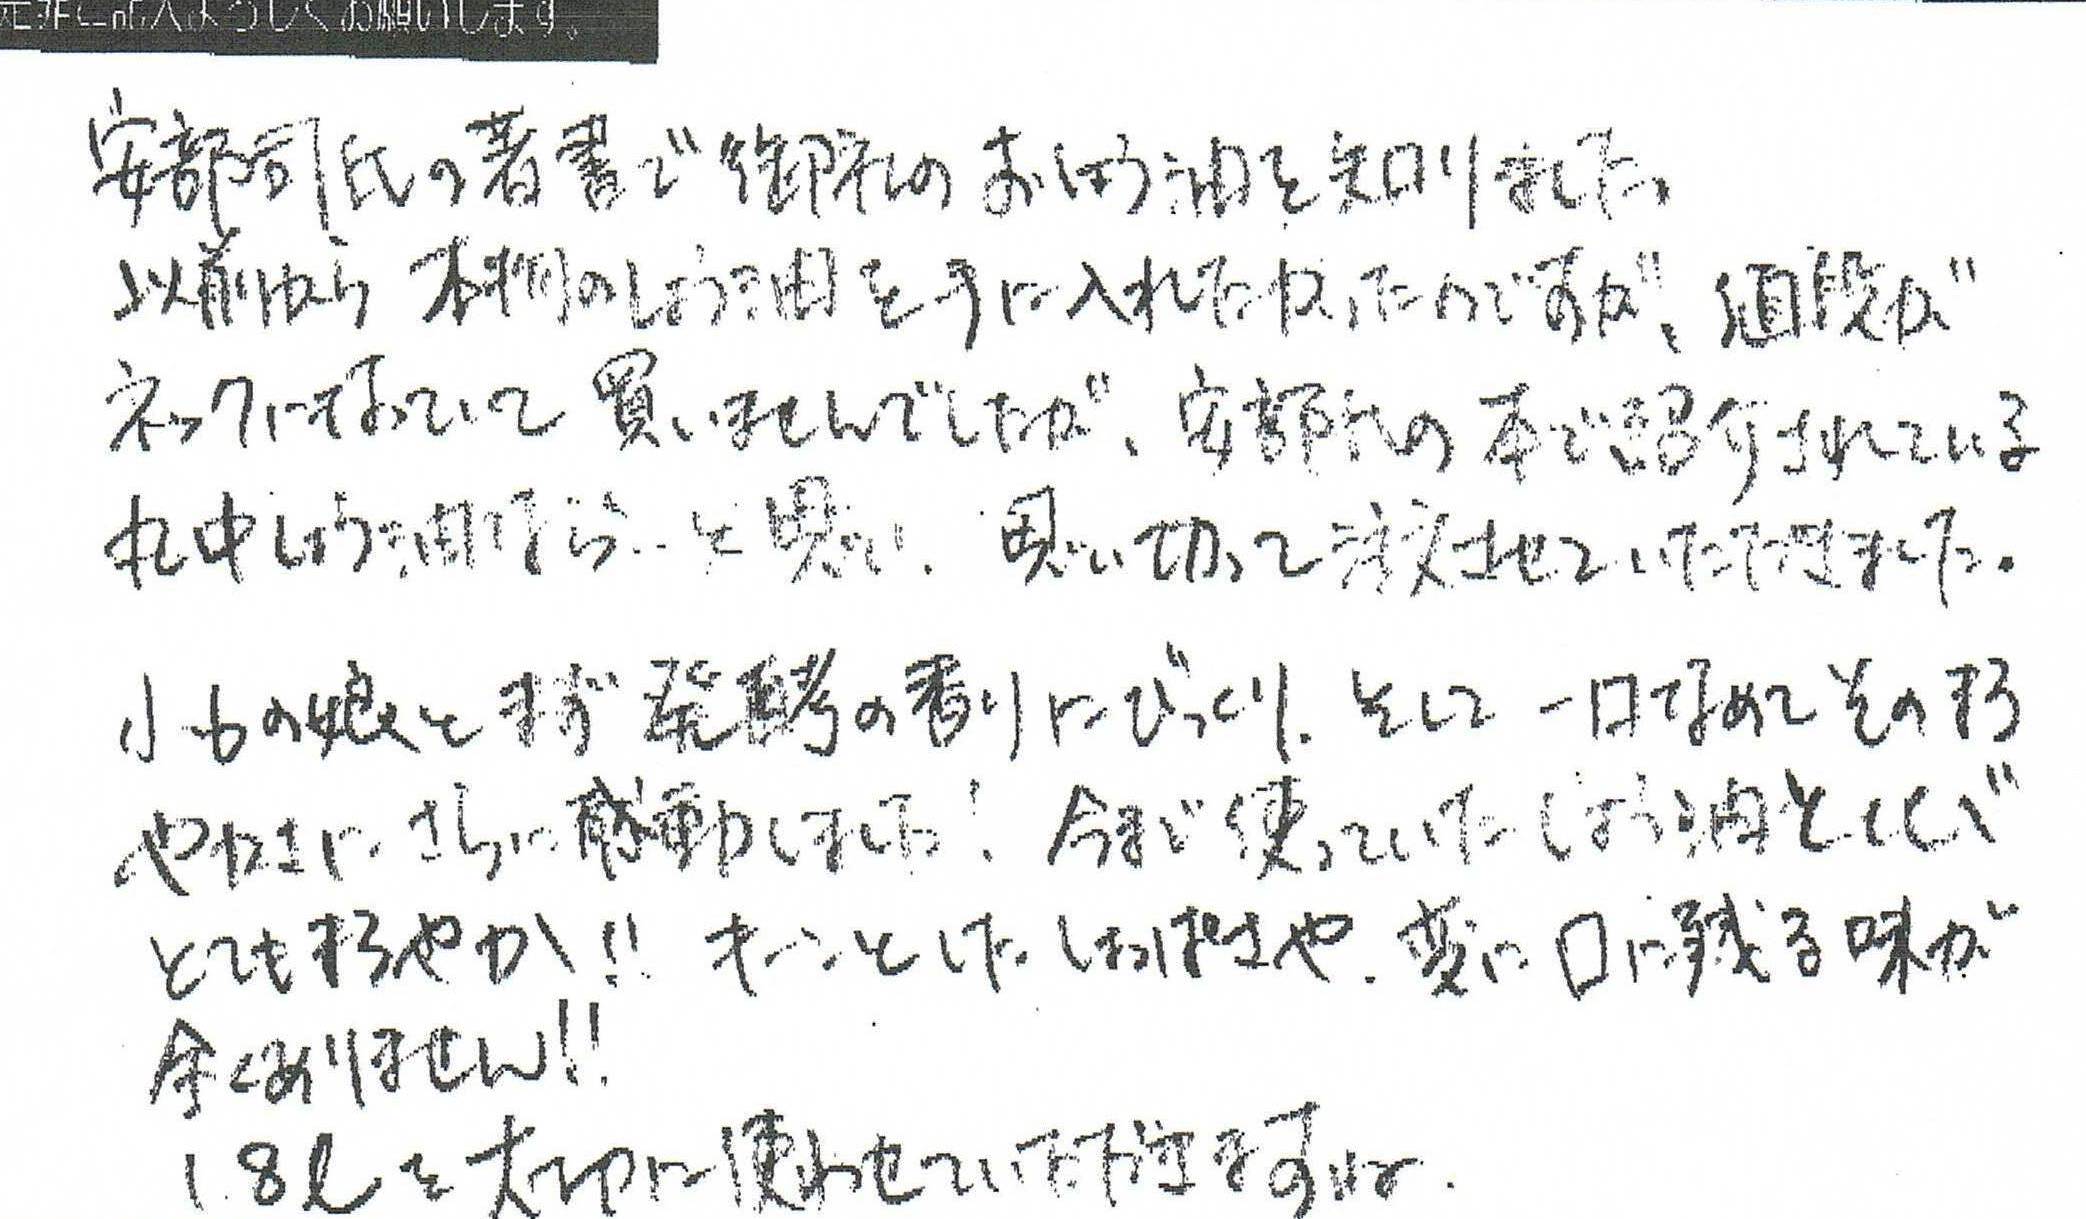 是非ご記入よろしくお願いします。
安部司氏の著書で御社のおしょう油を知りました。
以前から本物のしょう油を手に入れたかったのですが、値段が
ネックになっていて買いませんでしたが、安部氏の本で紹介されている
しょう油なら…と思い、思い切って注文させていただきました。
小6の娘とまず発酵の香りにびっくり。そして一口なめてそのまろ
やかさにさらに感動しました！今まで使っていたしょう油とくらべ
とてもまろやか!! キーンとしたしょっぱさや、変に口に残る味が
全くありません!!
1.8ℓを大切に使わせていただきますね.